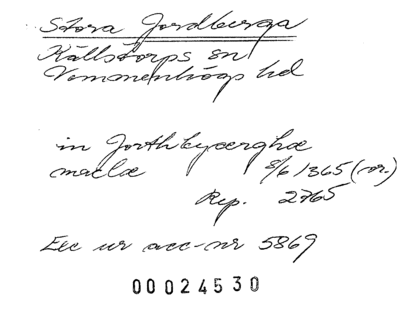 Stora Jordberga
Källstorps sn
Vemmenhögs hd
in Jorthbyærghæ
maclæ 8/6 1365 (or.)
Rep. 2765
Exc ur acc-nr 5869
00024530